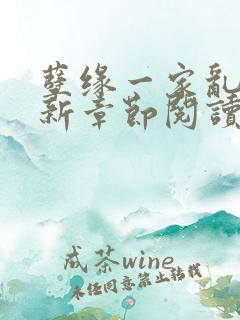 孽缘一家亂
新章節閱讀
成茶wine
未经同意禁止转载